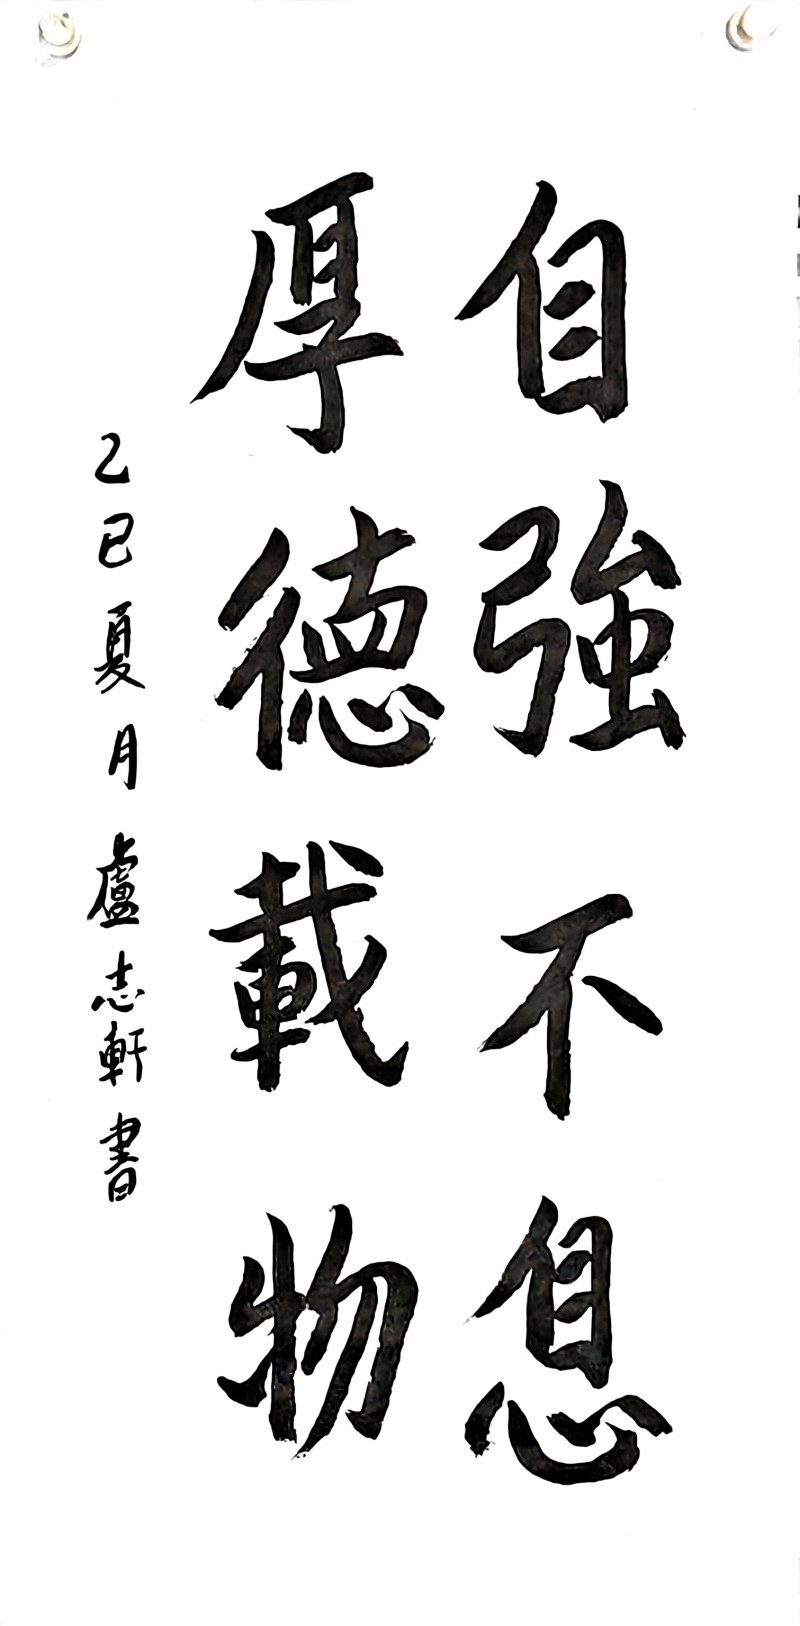 自強不息
厚德載物
乙巳夏月盧志軒書